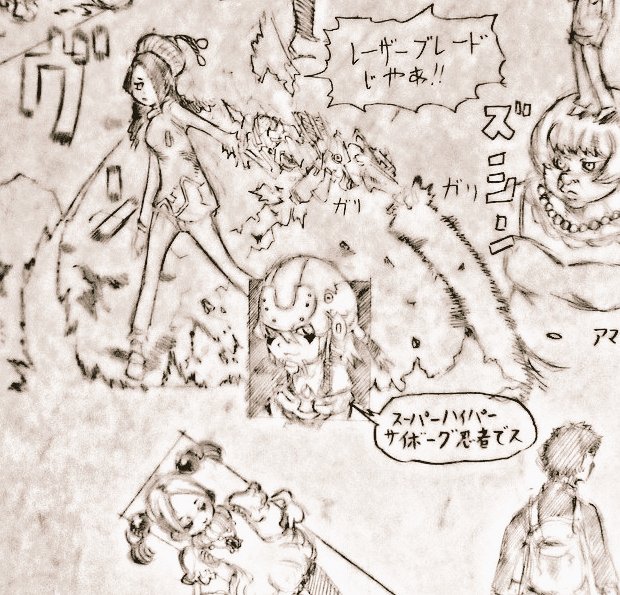 レーザーブレード
じゃあ!!
ズシーン
ガリ
ガリ
アマ
スーパーハイパー
サイボーグ忍者でス